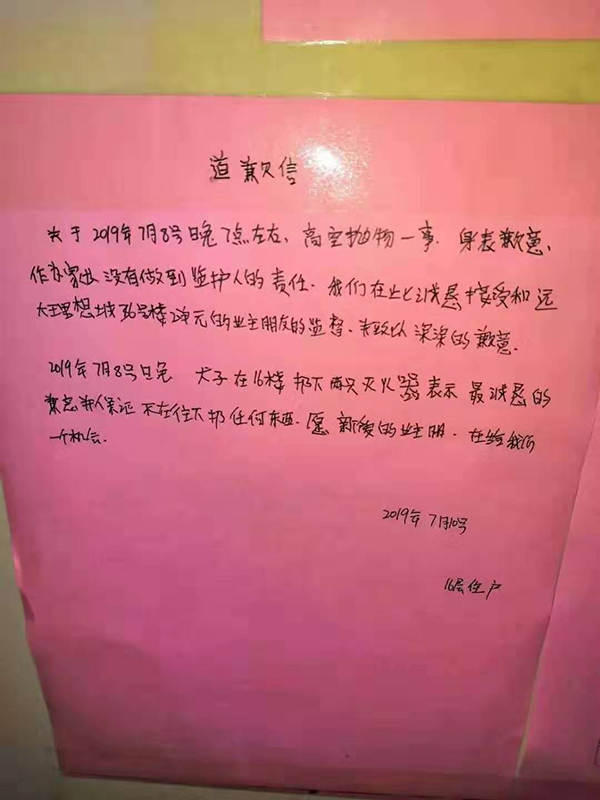 道歉信
关于2019年7月8号晚7点左右、高空抛物一事. 身表歉意,
作为家长没有做到监护人的责任. 我们在此诚恳接受和远
大理想城36号楼2单元的业主朋友的监督. 来致以深深的歉意.
2019年7月8号晚 犬子在16楼扔下两只灭火器表示最诚恳的
歉意并保证不在往下扔任何东西. 愿 的业主朋. 在给我们
一个机会.
2019年7月10号
16层住户